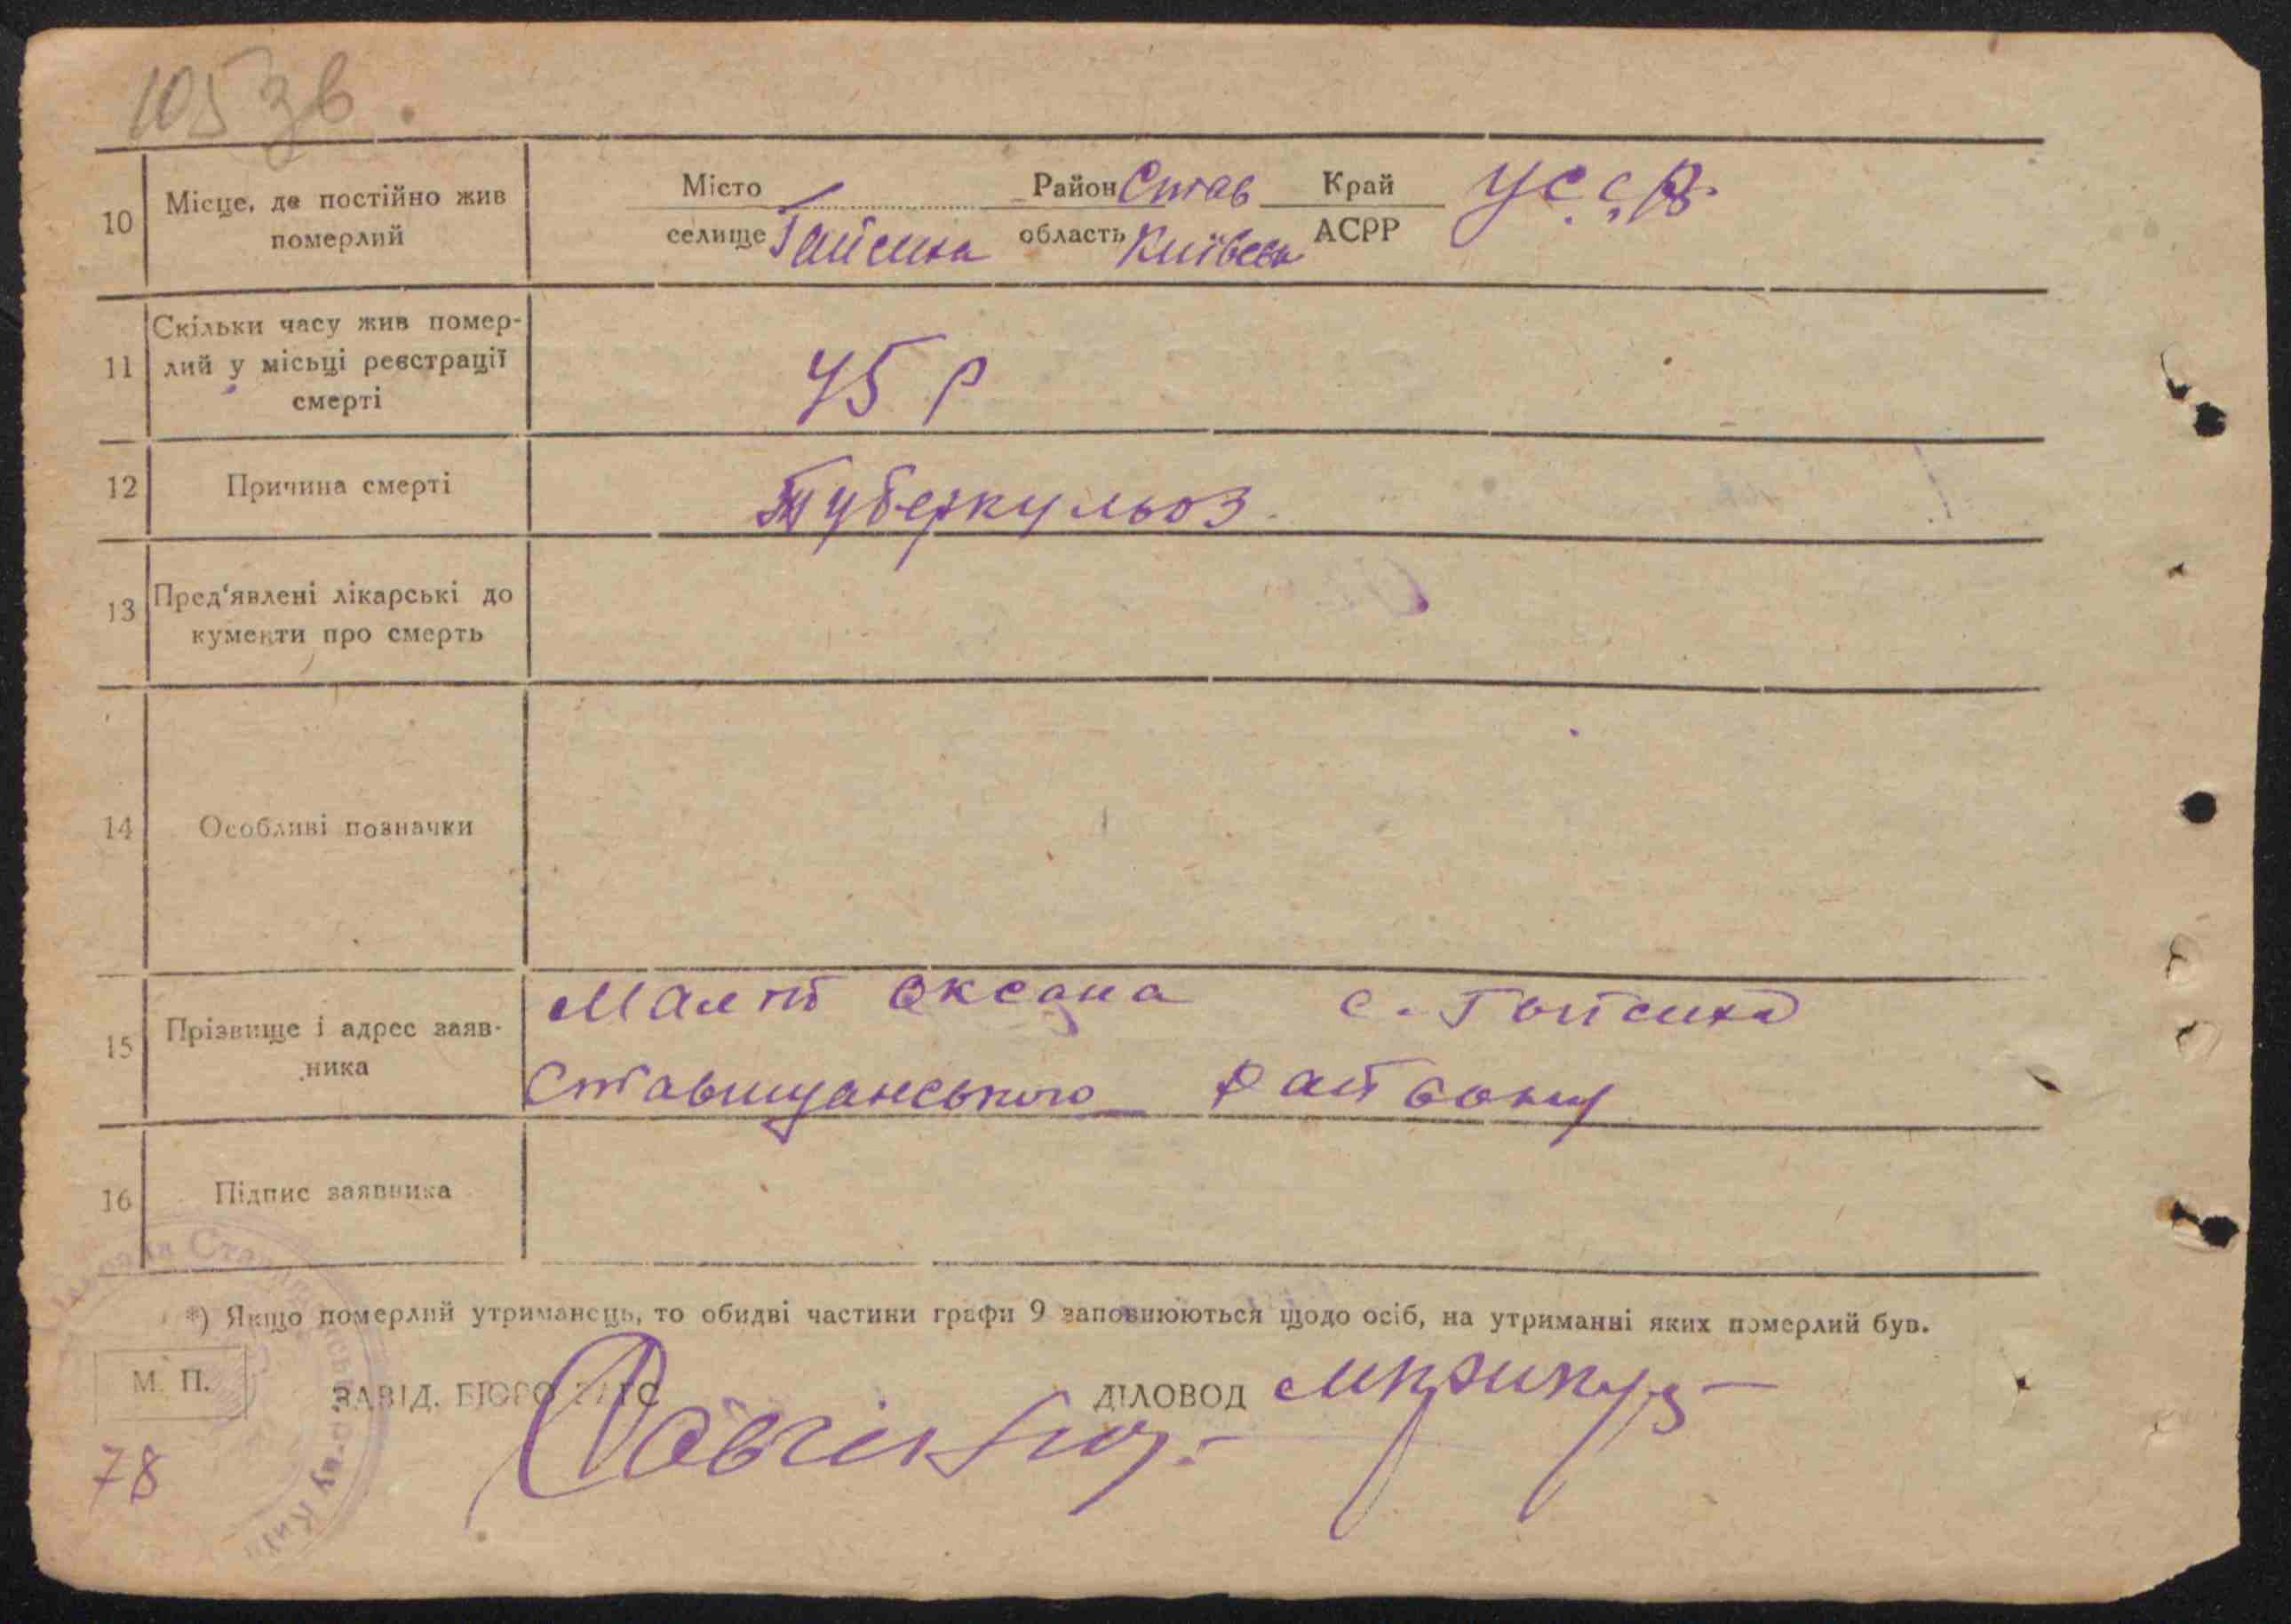 105 зв.
Місто Район Став Край У.С.С.Р.
селище Гайсиха область Київськ АСРР
10 Місце, де постійно жив
померлий
11 Скільки часу жив помер-
лий у місьці реєстрації
смерті
45 р
12 Причина смерті Туберкульоз
13 Пред'явлені лікарські до
кументи про смерть
14 Особливі позначки
15 Прізвище і адрес заяв-
ника
Оксана с. Гайсиха
Ставищанського Району
16 Підпис заявника
*) Якщо померлий утриманець, то обидві частини графи 9 заповнюються щодо осіб, на утриманні яких померлий був.
М. П. ЗАВІД. БЮРО ЗАГС ДІЛОВОД
78